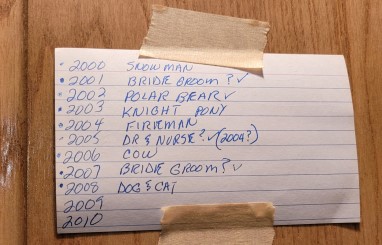 • 2000 SNOWMAN
• 2001 BRIDE GROOM? ✓
• 2002 POLAR BEAR ✓
• 2003 KNIGHT PONY
• 2004 FIREMAN
• 2005 DR & NURSE? ✓ (2009?)
• 2006 COW
• 2007 BRIDE GROOM? ✓
• 2008 DOG & CAT
2009
2010